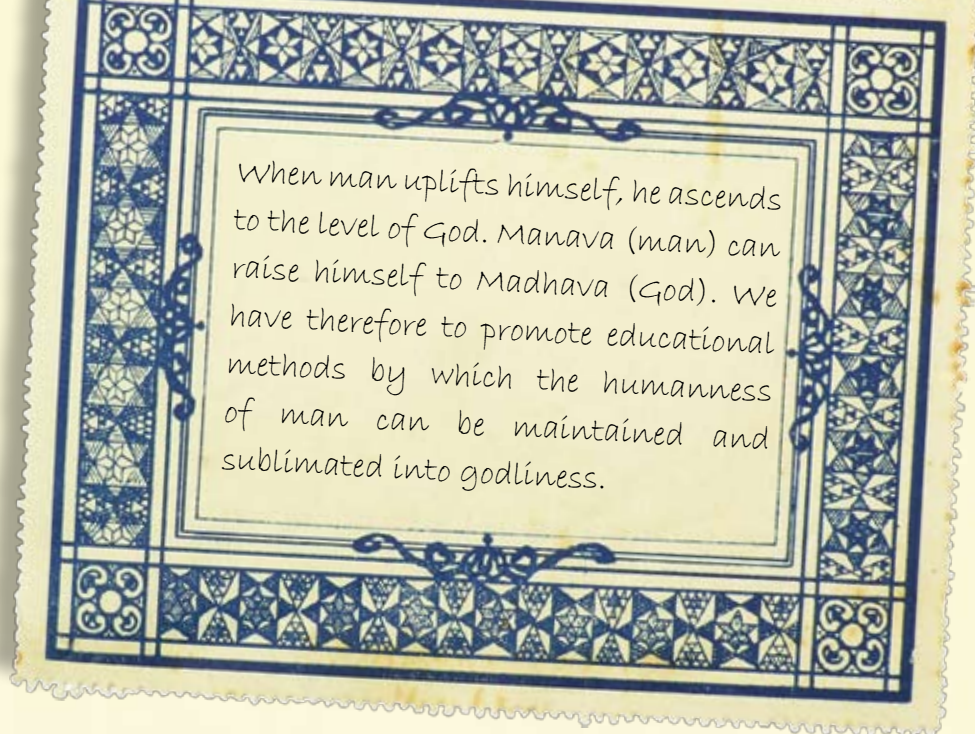 When man uplifts himself, he ascends
to the level of God. Manava (man) can
raise himself to Madhava (God). We
have therefore to promote educational
methods by which the humanness
of man can be maintained and
sublimated into godliness.